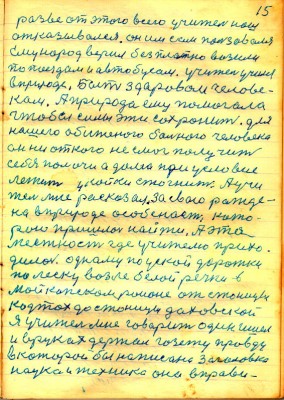 15
разве от этого всего учител наш
отказывался. он им сам ползовался
ему народ верил безплатно возили
по поездам и автобусам. учител учился
в природе. Быть здоровом челове-
кам. А природа ему помогала
чтобы силы эти сохранит. для
нашего обиженого болного человека
он ни откого не смог получить
себя помочи а дома при условие
лежит у койки стогнит. А учи
тел мне расказал. За своо рожде-
на в природе особеност, кото-
рою пришлос найти. А эта
местност где учителю прихо-
дилос. одному по узкой дорожки
по леску возле белой речки в
майкопском районе от станицы
до станицы даховской
Я учител мне говарит один ишел
и в руках держал газету правду
в которой бы написана Заголовка
наука и техника она вправи-